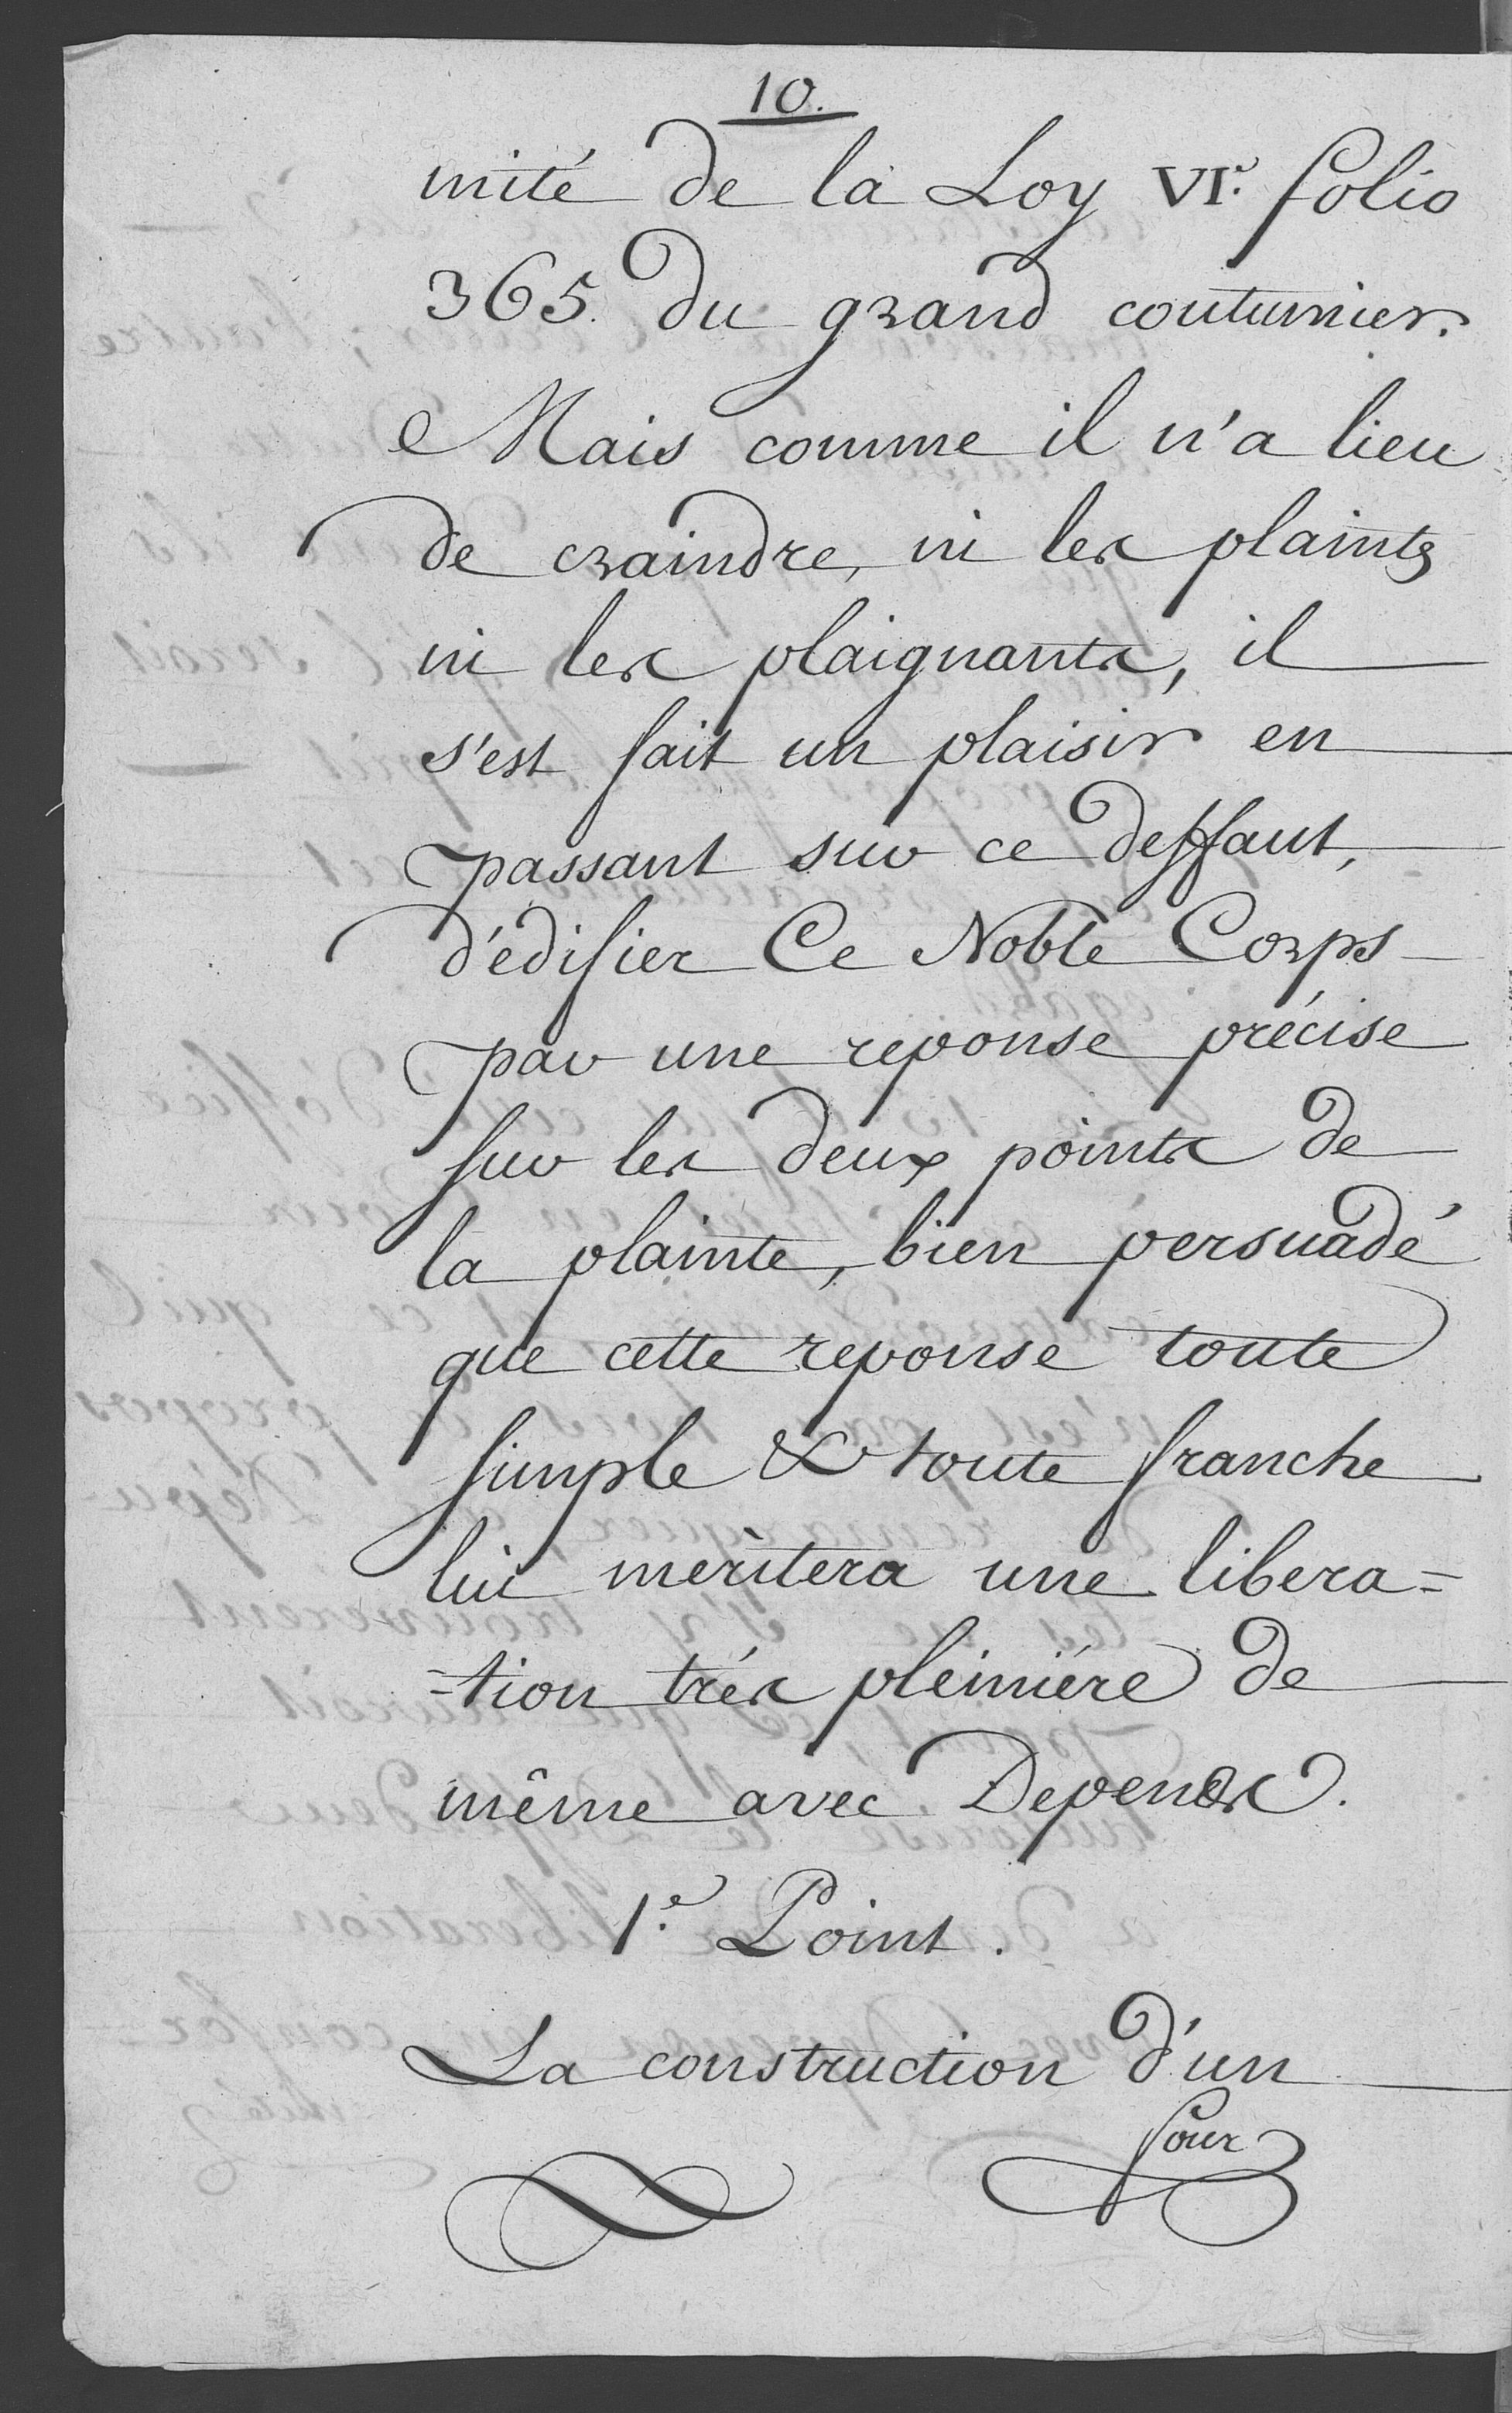 10.
mité de la Loy VI.e folio
365. du grand coutumier.
Mais comme il n'a lieu
de craindre, ni les plaints
ni les plaignants, il
s'est fait un plaisir en
passant sur ce deffaut,
d'édifier Ce Noble Corps
par une reponse précise
sur les deux points de
la plainte, bien persuadé
que cette reponse toute
simple & toute franche
lui meritera une libera=
=tion trés pleiniére de
même avec Depends.
1.e Point.
La construction d'un
four